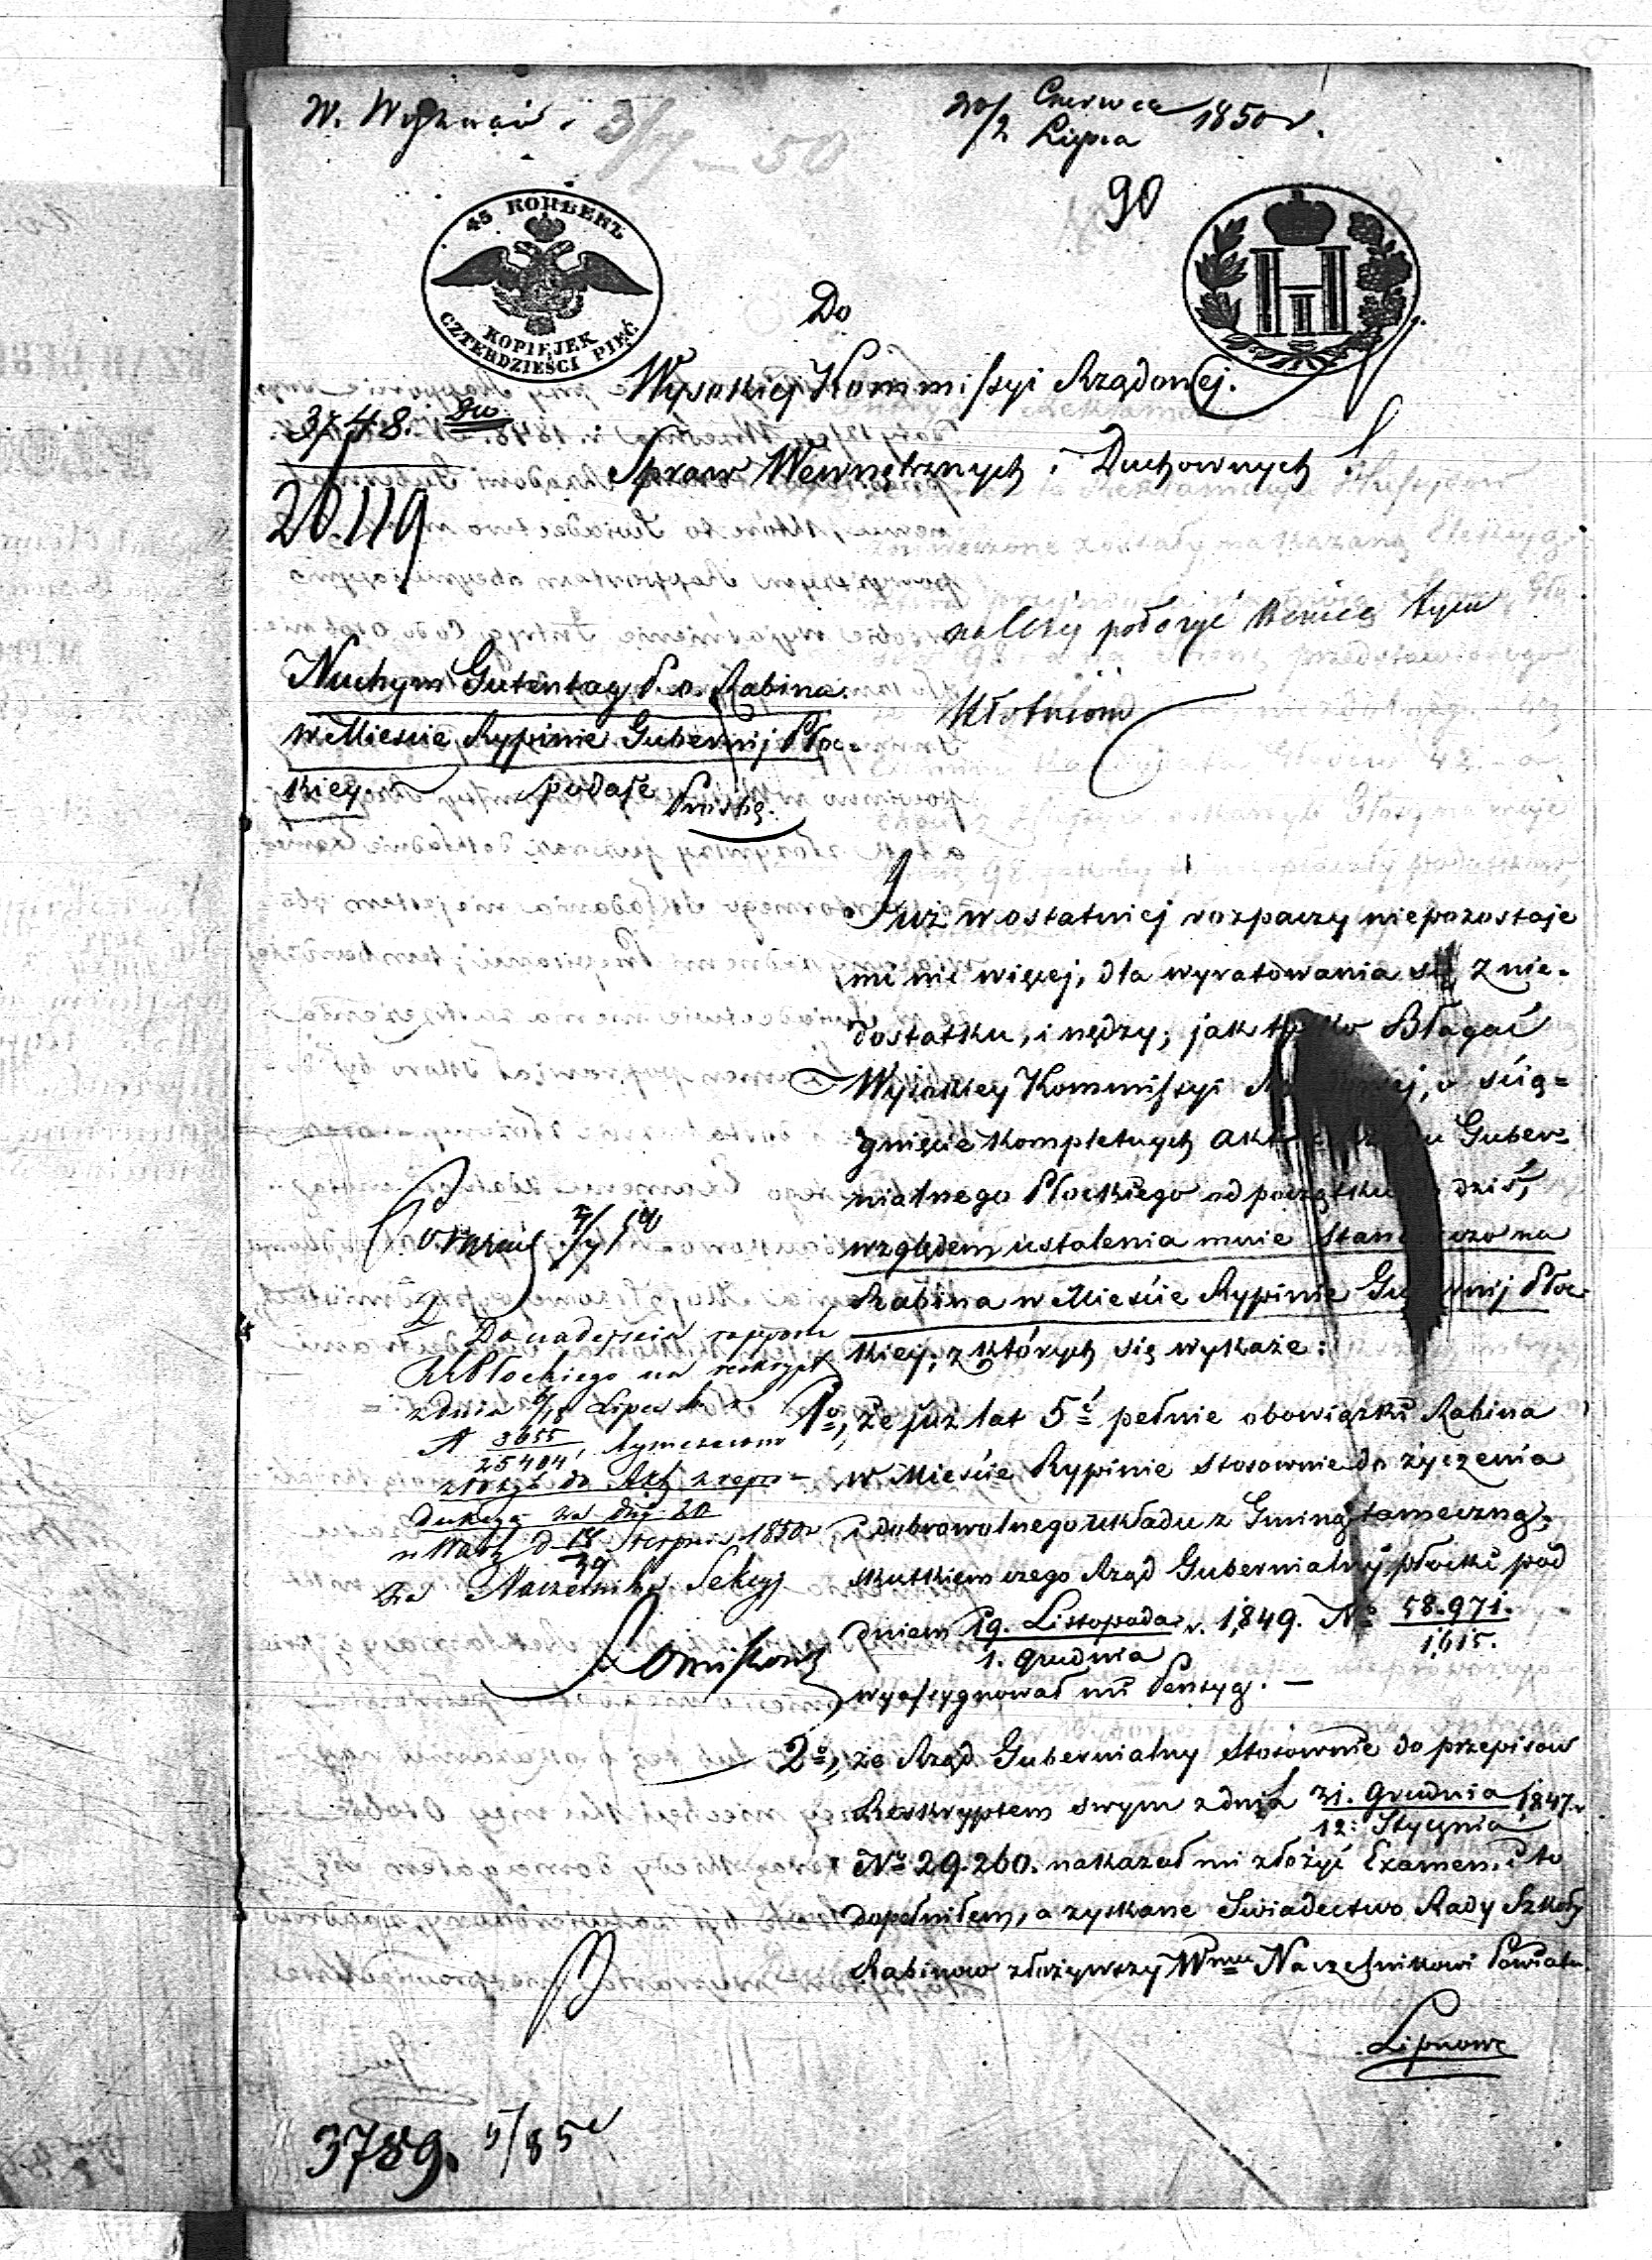 W. Wyznań.
3/7 – 50
20/2 Czerwca Lipca 1850 r.
90
45 КОПѢЕКЪ
KOPIEJEK
CZTERDZIEŚCI PIĘĆ
Do
Wysokiej Kommissyi Rządowej.
Spraw Wewnętrznych i Duchownych
20.119
należy położyć koniec tym
kłótniom
Nuchym Gutentag P. o. Rabina
w Mieście Rypinie Gubernij Płoc-
kiey. podaje Prośbę.
Już w ostatniej rozpaczy niepozostaje
mi nic więcej, dla wyratowania się z nie-
dostatku, i nędzy; jak tylko Błagać
Wysokiey Kommissyi Rządowej, o ścią=
gnięcie kompletnych akt Rządu Guber=
nialnego Płockiego od początku do dziś,
względem ustalenia mnie stanowczo na
Rabina w Mieście Rypinie Gubernij Płoc-
kiey; z których się wykaże:
1o, że już lat 5ć pełnie obowiązki Rabina
w Mieście Rypinie stosownie do życzenia
i dobrowolnego układu z Gminą tameczną;
skutkiem czego Rząd Gubernialny płocki pod
dniem 19. Listopada / 1. Grudnia r. 1849. No 58.971. / 1615.
wyassygnował mi Pensyą. —
2o, że Rząd Gubernialny stosownie do przepisow
Reskryptem swym z dnia 31. Grudnia / 12: Stycznia 1847. r
No 29.260. nakazał mi złożyć Examen. i to
dopełniłem, a zyskane Swiadectwo Rady Szkoły
Rabinow złożywszy Wmu Naczelnikowi Powiatu
Lipnows
Do nadejścia rapportu
RGPłockiego na reskrypt
z dnia 6/18 Lipca b. r.
N 3655 / 25404, tymczasowo
złożyć do Akt z repro-
dukcyą na dzień 20
w Warsz. d. 18/30 Sierpnia 1850 r
Za Naczelnika Sekcyj
3789.